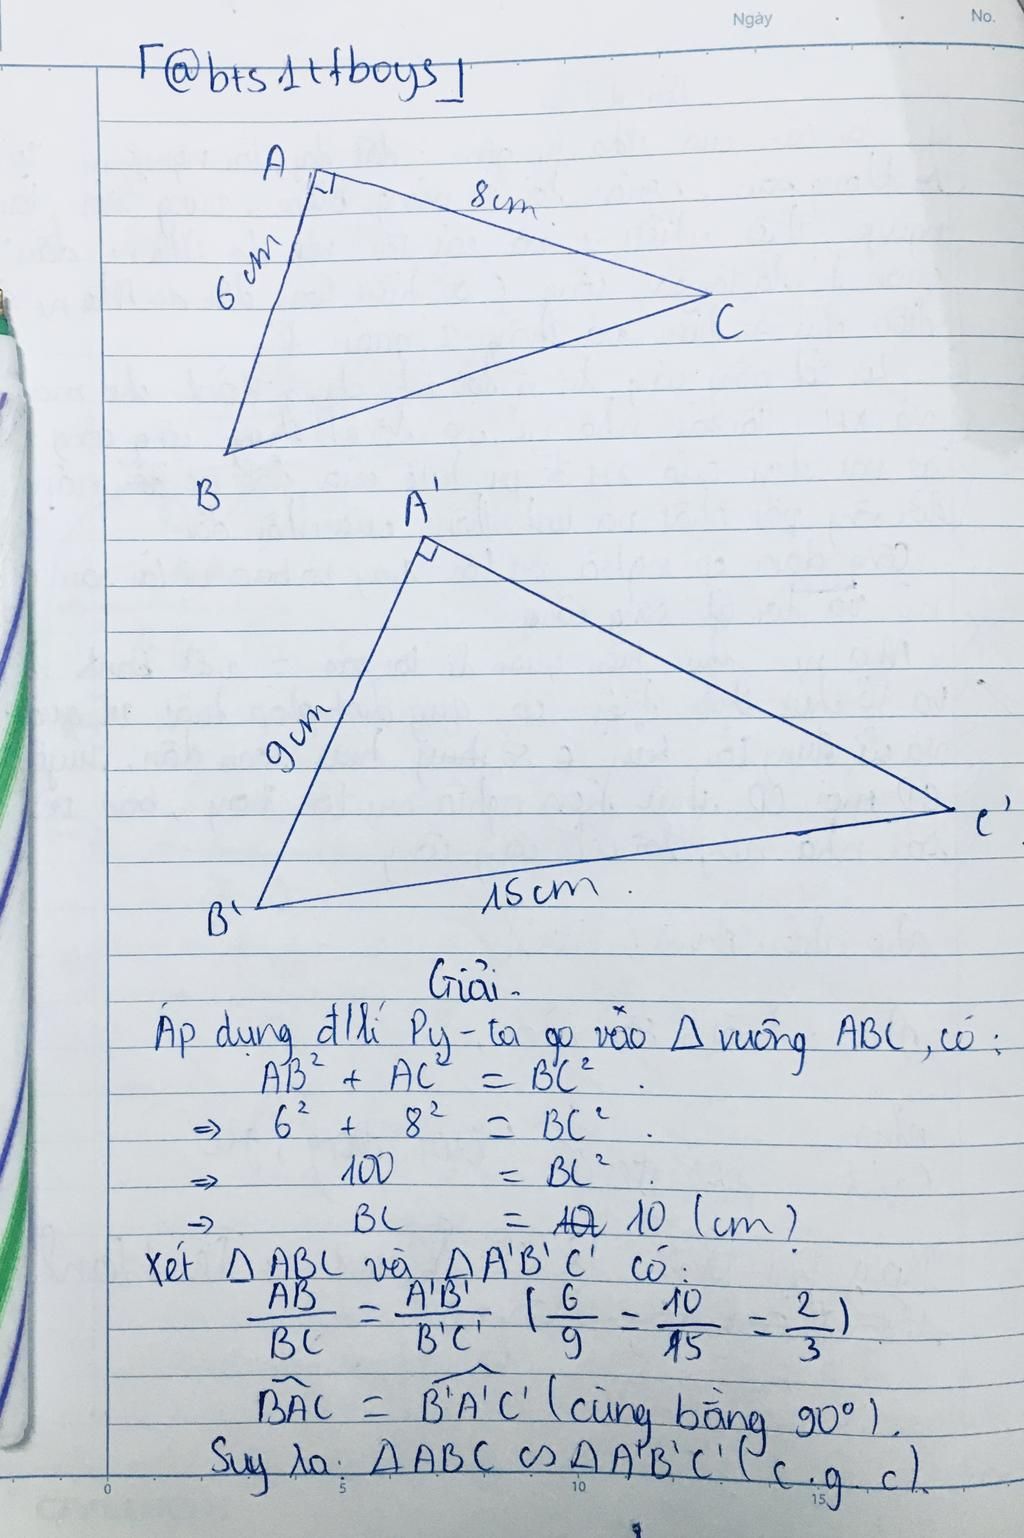 Ngày No.
「@bts1tfboys」
A
8cm
6cm
C
B
A'
9cm
C'
15cm
B'
Giải.
Áp dụng đ/lí Py-ta go vào Δ vuông ABC, có:
AB² + AC² = BC².
⇒ 6² + 8² = BC².
⇒ 100 = BC².
⇒ BC = 10 (cm)
Xét Δ ABC và Δ A'B'C' có:
AB/BC = A'B'/B'C' (6/9 = 10/15 = 2/3)
BAC = B'A'C' (cùng bằng 90°).
Suy ra: Δ ABC ∽ Δ A'B'C' (c.g c).
0 5 10 15